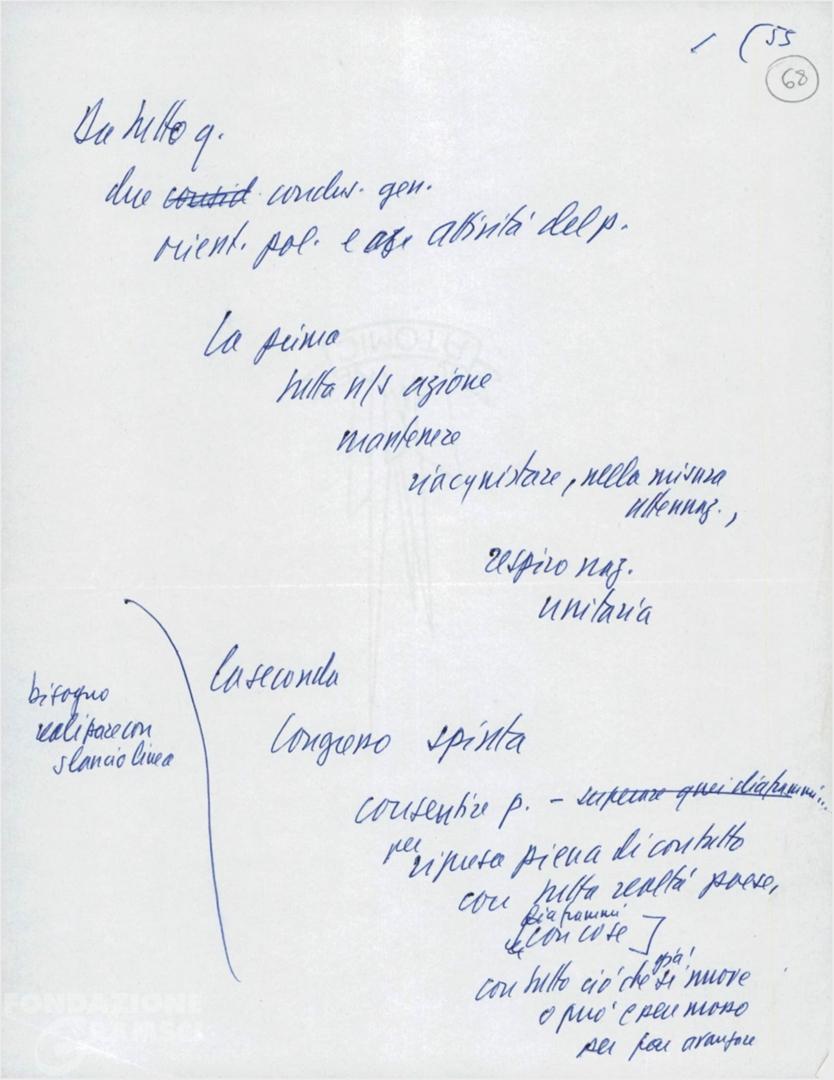 55
68
Da tutto q.
due consid. conclus. gen.
orient. pol. e attività del p.
la prima
tutta n/s azione
mantenere
riacquistare, nella misura
attennaz.,
respiro naz.
unitaria
la seconda
bisogno
realizzare con
slancio linea
Congresso spinta
consentire p. - superare quei diaframmi...
per ripresa piena di contatto
con tutta realtà paese,
diaframmi
con cose
già
con tutto ciò che si muove
o può esser mosso
per fare avanzare
FONDAZIONE
GRAMSCI